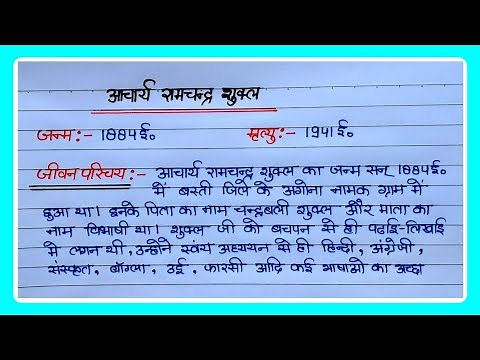 आचार्य रामचन्द्र शुक्ल
जन्म:- 1884ई० मृत्यु:- 1941ई०
जीवन परिचय:- आचार्य रामचन्द्र शुक्ल का जन्म सन् 1884ई०
में बस्ती जिले के अगोना नामक ग्राम में
हुआ था। इनके पिता का नाम चन्द्रबली शुक्ल और माता का
नाम विभाषी था। शुक्ल जी को बचपन से ही पढाई-लिखाई
मे लगन थी, उन्होने स्वंय अध्ययन से ही हिन्दी, अंग्रेजी,
संस्कृत, बॉग्ला, उर्दू, फारसी आदि कई भाषाओ का अच्छा